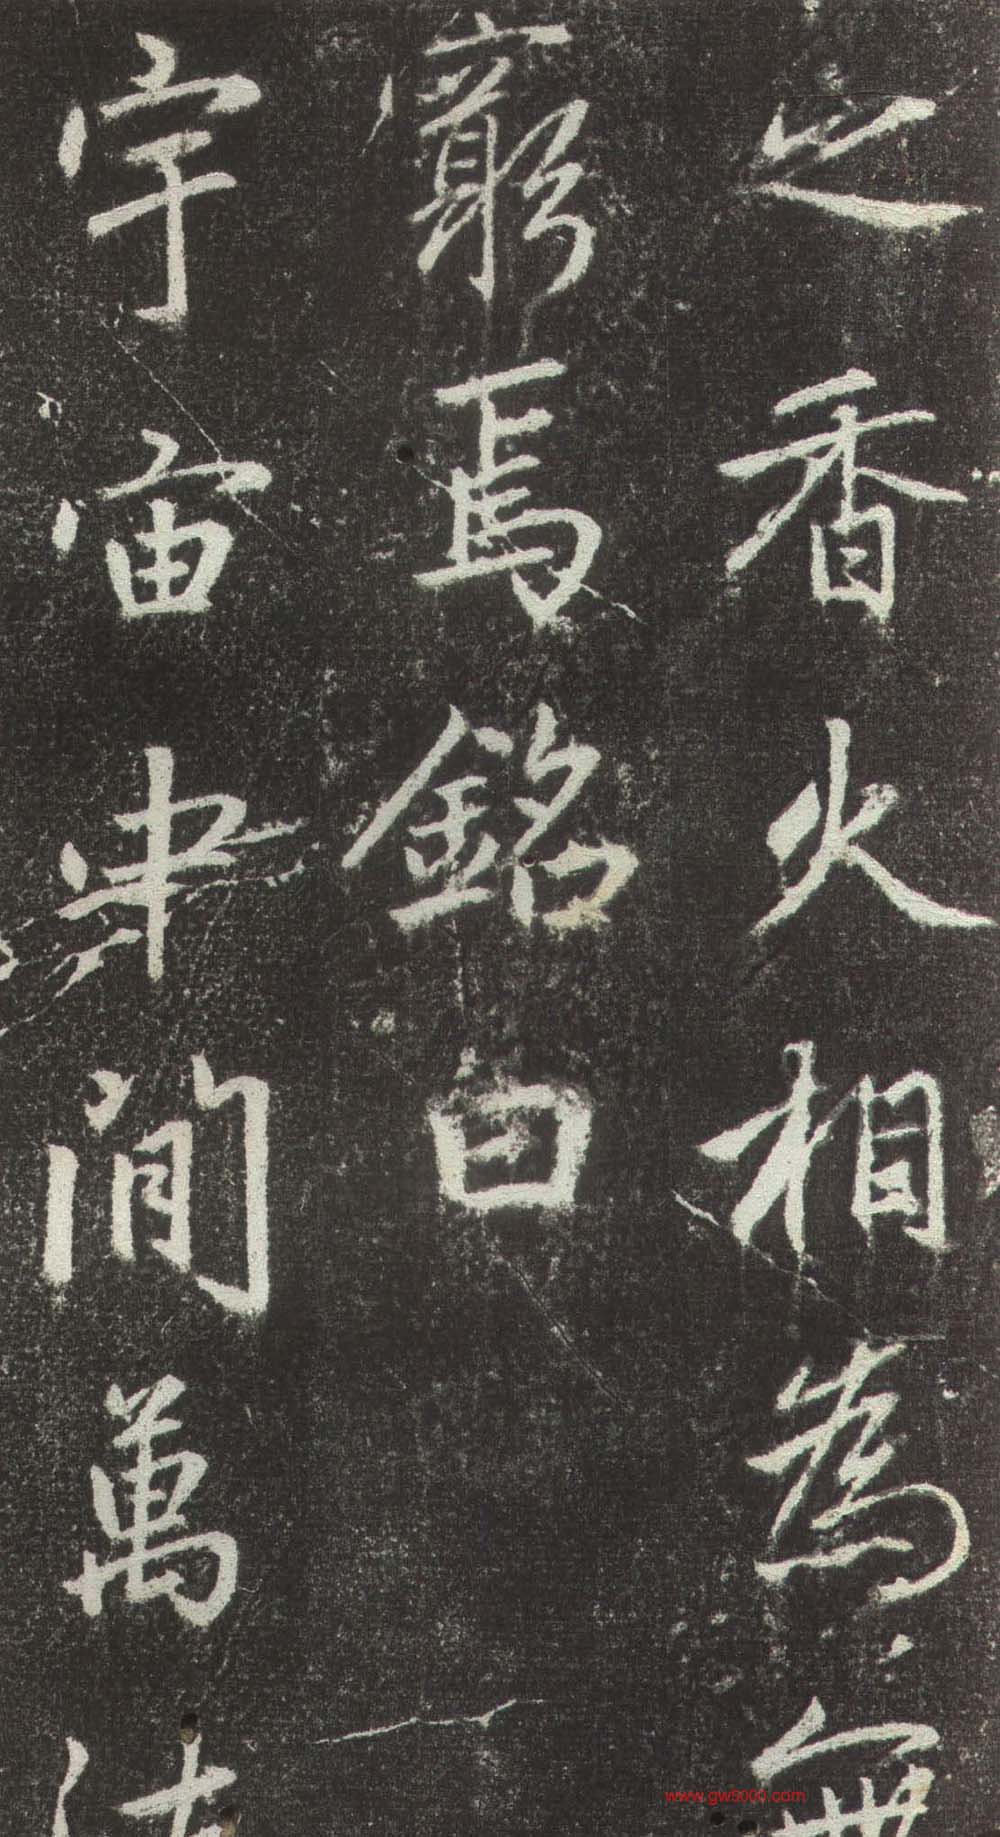 之香火相為無
窮焉銘曰
宇宙中間萬法
www.gw9000.com